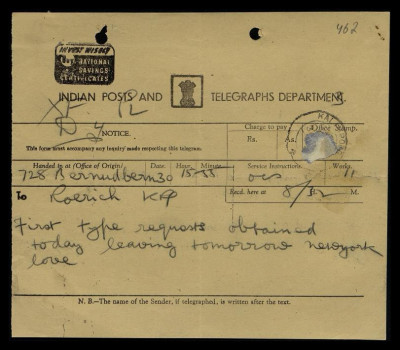 462
INVEST WISELY
NATIONAL
SAVINGS
CERTIFICATES
INDIAN POSTS AND TELEGRAPHS DEPARTMENT.
NOTICE.
This form must accompany any inquiry made respecting this telegram.
Charge to pay.
Rs. As.
Office Stamp.
Handed in at (Office of Origin). Date. Hour. Minute. Service Instructions. Words.
728 30 15-55 11
Recd. here at H. M.
To Roerich KP
First type requests obtained
today leaving tomorrow newyork
love
N. B.—The name of the Sender, if telegraphed, is written after the text.